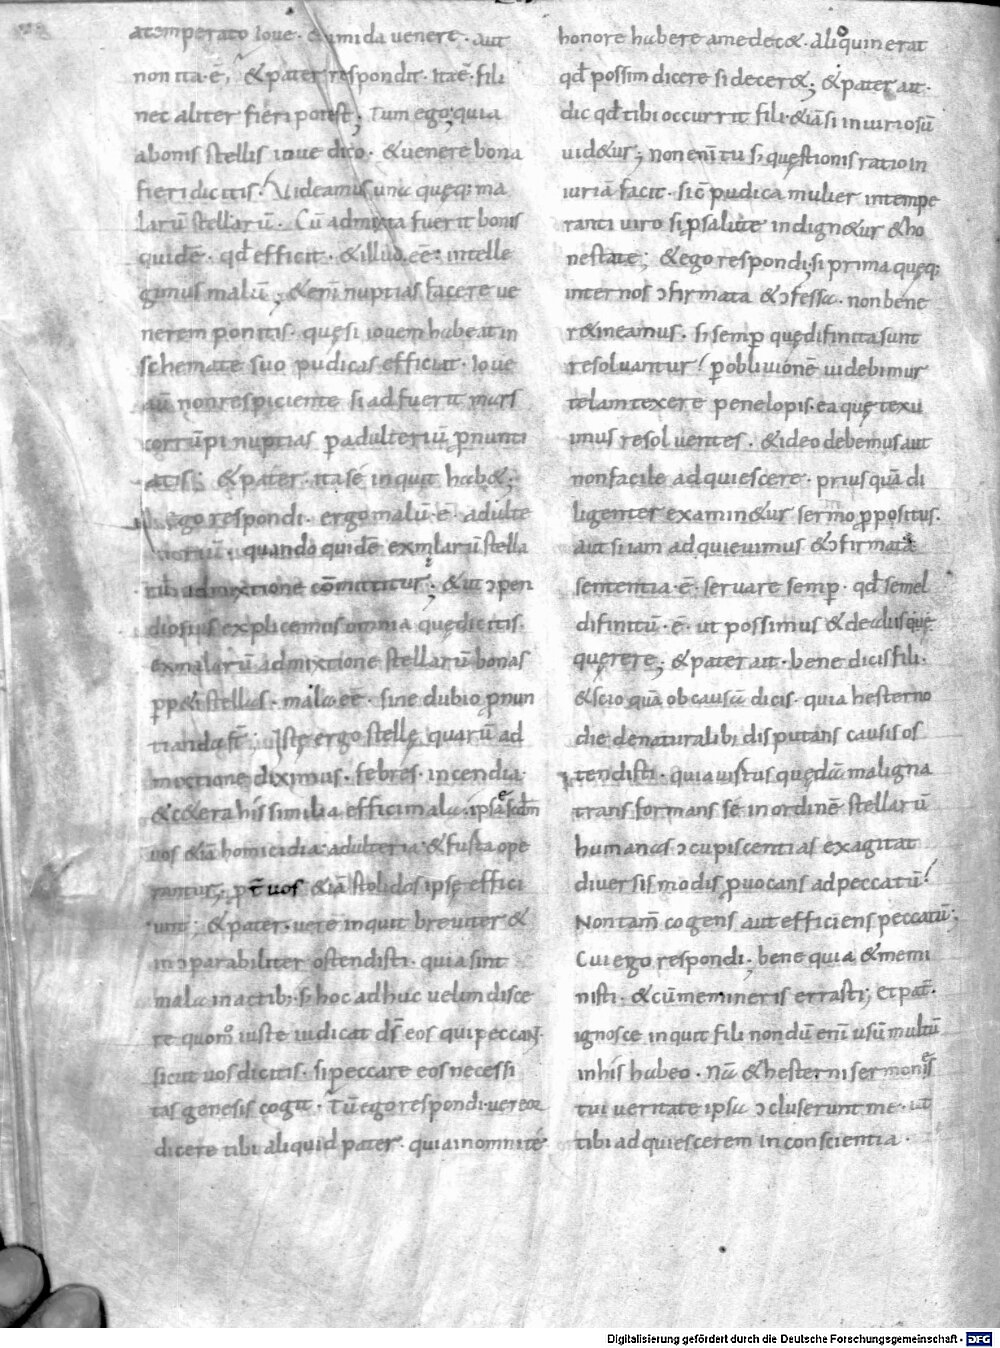 atemperato ioue · & umida uenere · aut
non ita · ē, & pater respondit · Ita ē · fili
nec aliter fieri potest; Tum ego; quia
a bonis stellis ioue dico · & uenere bona
fieri dicitis · Uideamus una quęq; ma
larū stellarū · Cū admixta fuerit bonis
quidē · qđ efficit · & illud eē intelle
gimus malū; & enī nuptias facere ue
nerem ponitis · quę si iouem habeat in
schemate suo pudicas efficiat · Ioue
aū non respiciente si adfuerit mars
corrūpi nuptias p adulteriū pnunti
atis; & pater · ita se inquit hab&;
& ego respondi · ergo malū · ē · adulte
riorū · quando quidē ex malarū stella
rū admixtione cōmittitur; & ut ɔpen
diosius explicemus omnia quę dicitis ·
ex malarū admixtione stellarū bonas
pp&i stellas · mala eē · sine dubio pnun
tianda sť; Istę ergo stellę quarū ad
mixtione diximus · febres · incendia ·
& c&era his similia effici mala · ipsę scđm
uos &iā homicidia · adulteria · & furta ope
rantur; pť uos &iā stolidos ipsę effici
unt; & pater · uere inquit breuiter &
inɔparabiliter ostendisti · quia sint
mala in actib; · s; hoc adhuc uelim disce
re quom̊ iuste iudicat dš eos qui peccant
sicut uos dicitis · si peccare eos necessi
tas genesis cogit · Tū ego respondi · uereor
dicere tibi aliquid pater · quia in omni te
honore habere me dec& · Alioquin erat
qđ possim dicere si decer&; & pater ait ·
dic qđ tibi occurrit fili · &iā si iniuriosū
uid&ur; non enī tu s; quęstionis ratio in
iuriā facit · sic pudica mulier intempe
ranti uiro si p salute indign&ur & ho
nestate; & ego respondi · si prima quęq;
inter nos ɔfirmata & ɔfessa · non bene
r&ineamus · s; semp quę difinita sunt
resoluantur p obliuionē uidebimur
telam texere penelopis · ea quę texu
imus resoluentes · & ideo debemus aut
non facile adquiescere · priusquā di
ligenter examin&ur sermo ppositus ·
aut si iam adquieuimus & ɔfirmata
sententia · ē · seruare semp · qđ semel
difinitū · ē · ut possimus & de aliis quę
querere; & pater ait · bene dicis fili ·
& scio quā ob causā dicis · quia hesterno
die de naturalib; disputans causis os
tendisti · quia uirtus quędā maligna
transformans se in ordinē stellarū
humanas ɔcupiscentias exagitat
diuersis modis puocans ad peccatū
Non tam cogens aut efficiens peccatū;
Cui ego respondi · bene quia & memi
nisti · & cū memineris errasti; Et pat̄ ·
ignosce inquit fili nondū enī usū multū
in his habeo · Nā & hesterni sermones
tui ueritate ipsa ɔcluserunt me · ut
tibi adquiescerem in conscientia ·
Digitalisierung gefördert durch die Deutsche Forschungsgemeinschaft - DFG